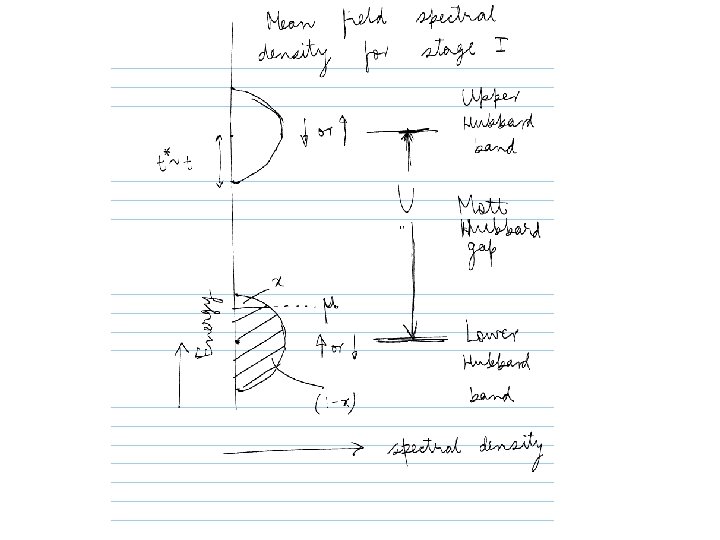 Mean field spectral
density for stage I
Upper
Hubbard
band
↓ or ↑
t* ~ t
U
Mott
Hubbard
gap
x
μ
Energy
↑ or ↓
Lower
Hubbard
band
(1-x)
spectral density